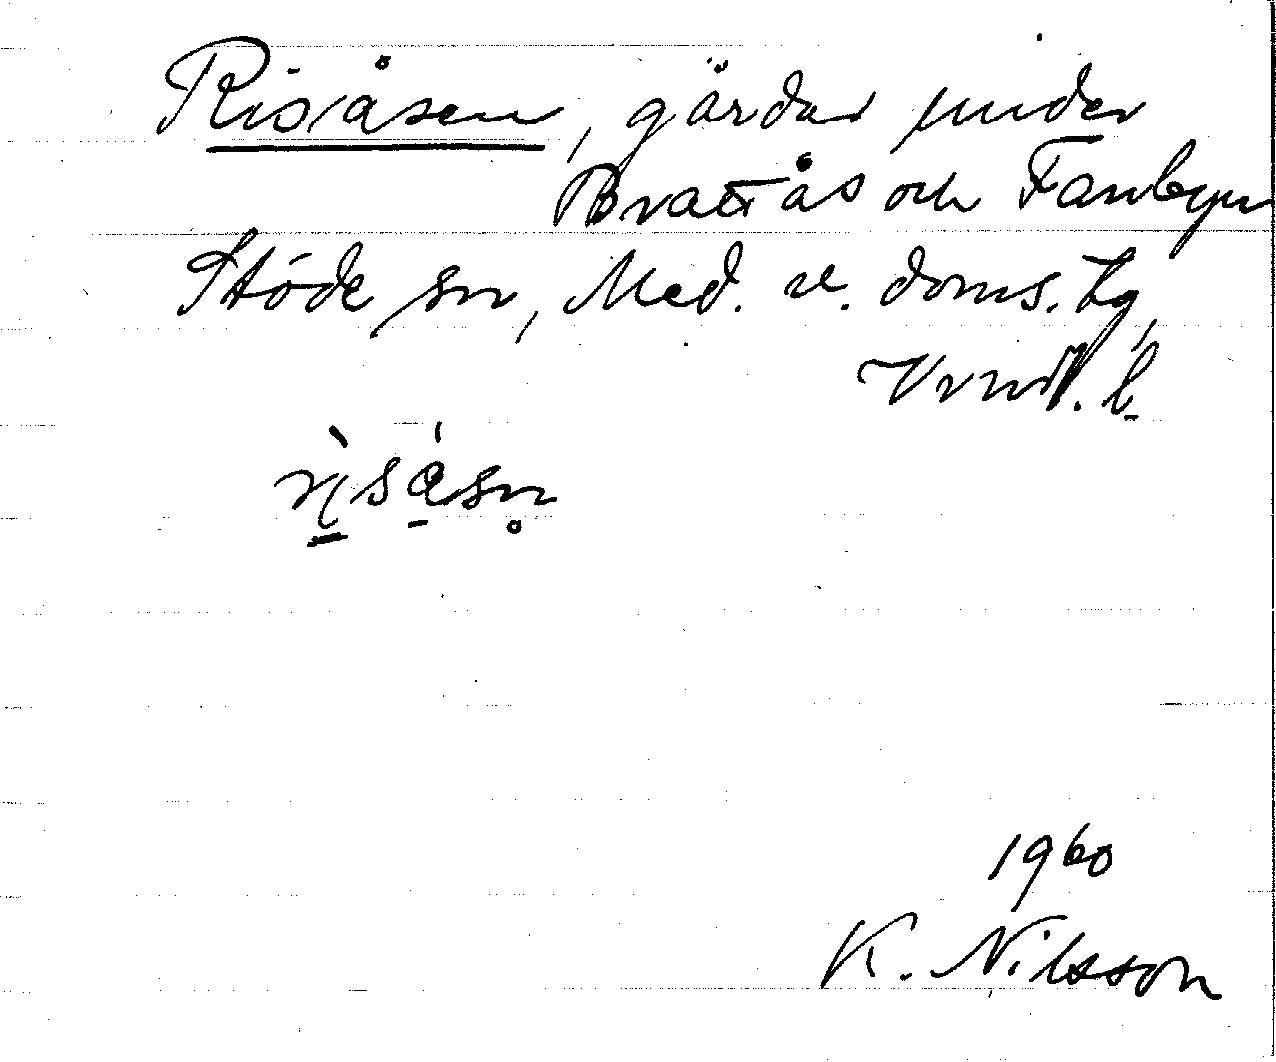 Risåsen, gårdar under
Brattås och Fanbyn
Stöde sn, Med. v. doms. tg,
Vrml. l.
1960
K. Nilsson